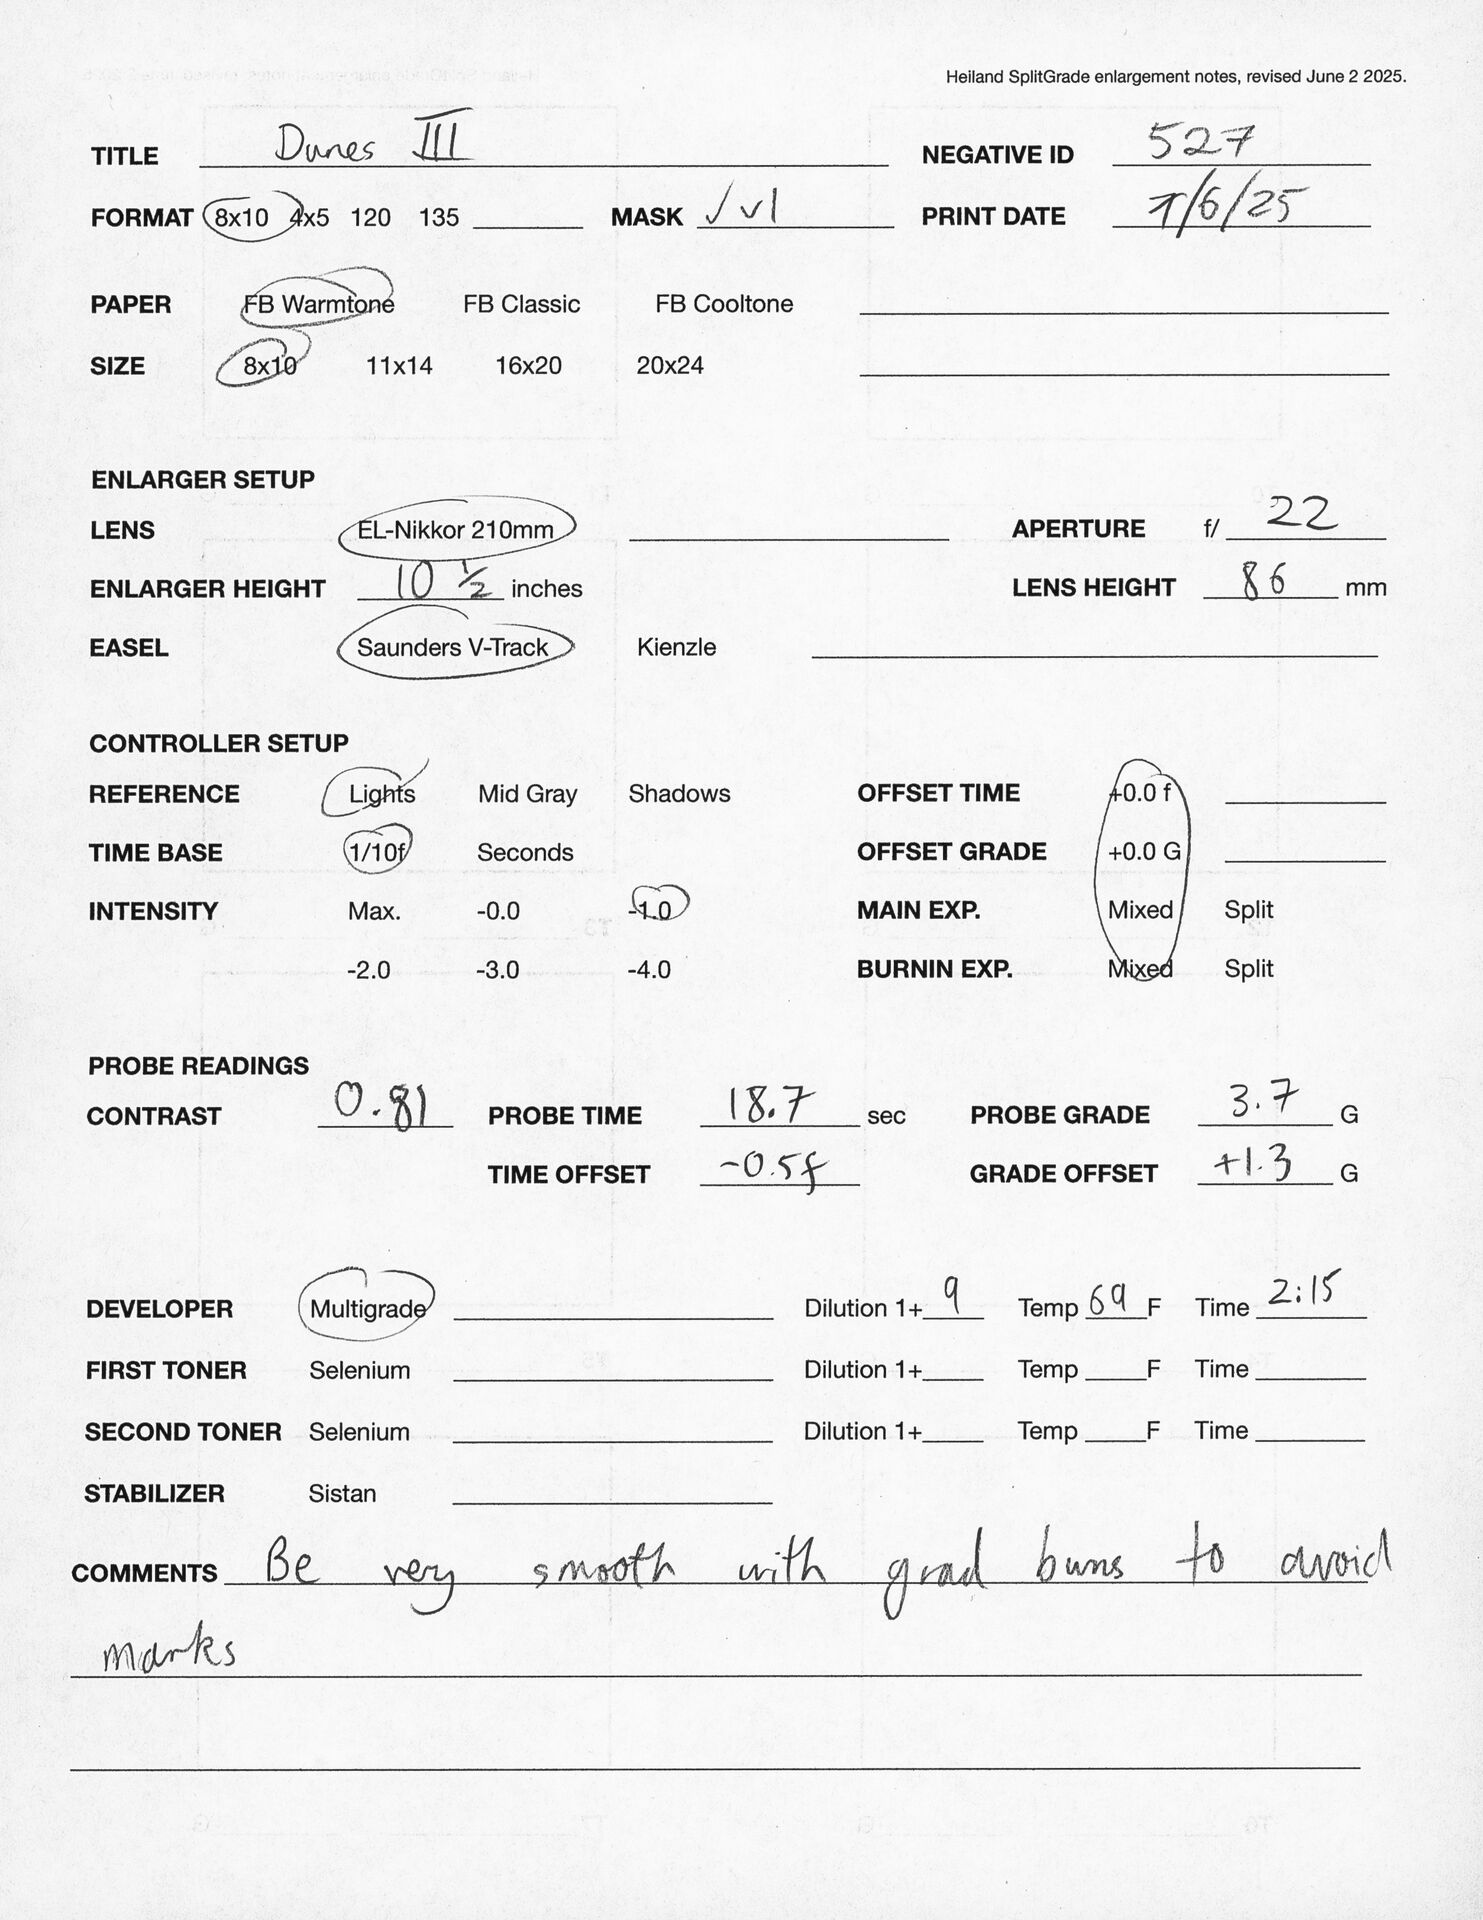 Heiland SplitGrade enlargement notes, revised June 2 2025.
TITLE Dunes III NEGATIVE ID 527
FORMAT 8x10 4x5 120 135 MASK √ v1 PRINT DATE 7/6/25
PAPER FB Warmtone FB Classic FB Cooltone
SIZE 8x10 11x14 16x20 20x24
ENLARGER SETUP
LENS EL-Nikkor 210mm APERTURE f/ 22
ENLARGER HEIGHT 10 ½ inches LENS HEIGHT 86 mm
EASEL Saunders V-Track Kienzle
CONTROLLER SETUP
REFERENCE Lights Mid Gray Shadows OFFSET TIME +0.0 f
TIME BASE 1/10f Seconds OFFSET GRADE +0.0 G
INTENSITY Max. -0.0 -1.0 MAIN EXP. Mixed Split
-2.0 -3.0 -4.0 BURNIN EXP. Mixed Split
PROBE READINGS
CONTRAST 0.81 PROBE TIME 18.7 sec PROBE GRADE 3.7 G
TIME OFFSET -0.5f GRADE OFFSET +1.3 G
DEVELOPER Multigrade Dilution 1+ 9 Temp 69 F Time 2:15
FIRST TONER Selenium Dilution 1+ Temp F Time
SECOND TONER Selenium Dilution 1+ Temp F Time
STABILIZER Sistan
COMMENTS Be very smooth with grad burns to avoid
marks